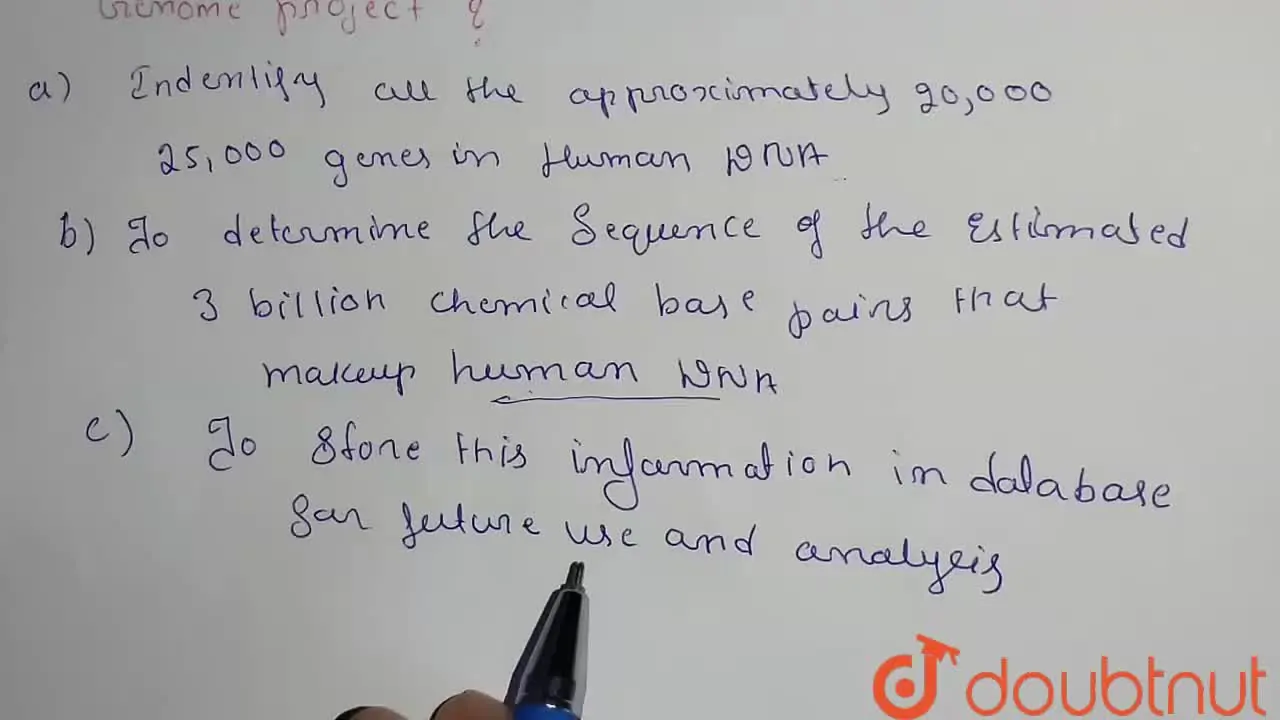 Genome project ?
a) Indentify all the approximately 20,000
25,000 genes in Human DNA
b) To determine the Sequence of the Estimated
3 billion chemical base pairs that
makeup human DNA
c) To Store this information in database
for future use and analysis
doubtnut